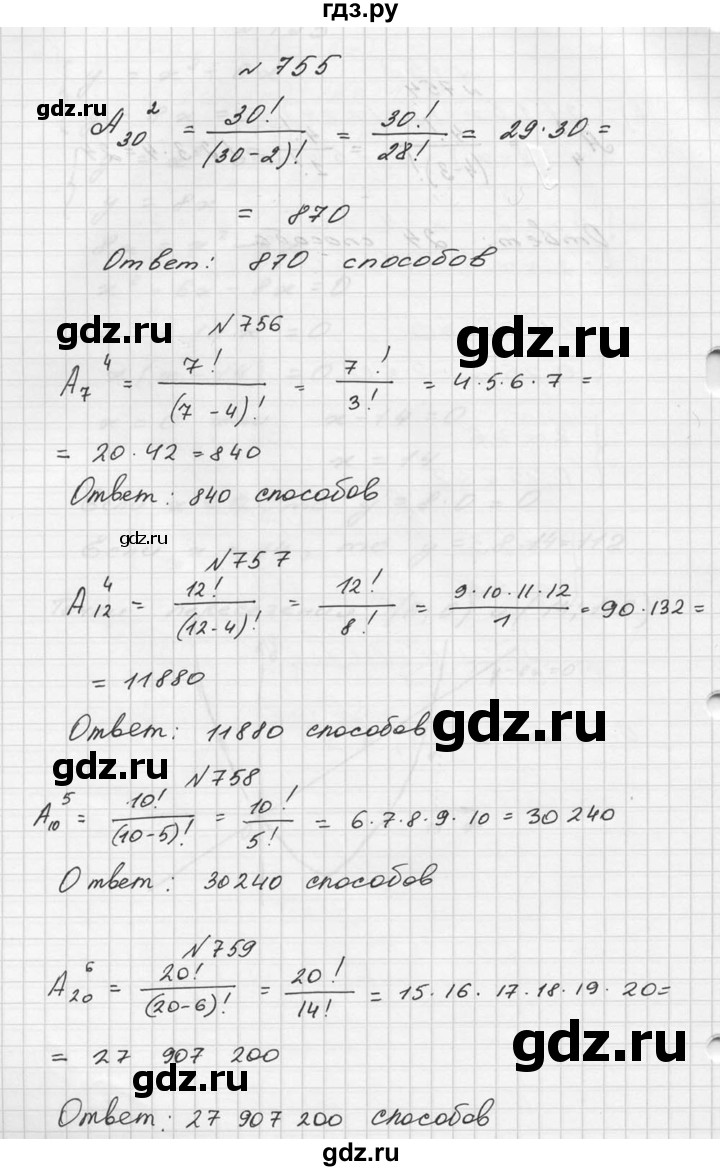 гдз.ру
№ 755
A₃₀² = 30! / (30-2)! = 30! / 28! = 29·30 =
= 870
Ответ: 870 способов
gdz.ru
№ 756
gdz.ru
gdz.ru
A₇⁴ = 7! / (7-4)! = 7! / 3! = 4·5·6·7 =
= 20·42 = 840
Ответ: 840 способов
gdz.ru
№ 757
A₁₂⁴ = 12! / (12-4)! = 12! / 8! = 9·10·11·12 / 1 = 90·132 =
= 11880
Ответ: 11880 способов
gdz.ru
№ 758
gdz.ru
A₁₀⁵ = 10! / (10-5)! = 10! / 5! = 6·7·8·9·10 = 30240
Ответ: 30240 способов
№ 759
A₂₀⁶ = 20! / (20-6)! = 20! / 14! = 15·16·17·18·19·20 =
= 27 907 200
gdz.ru
gdz.ru
Ответ: 27 907 200 способов
gdz.ru